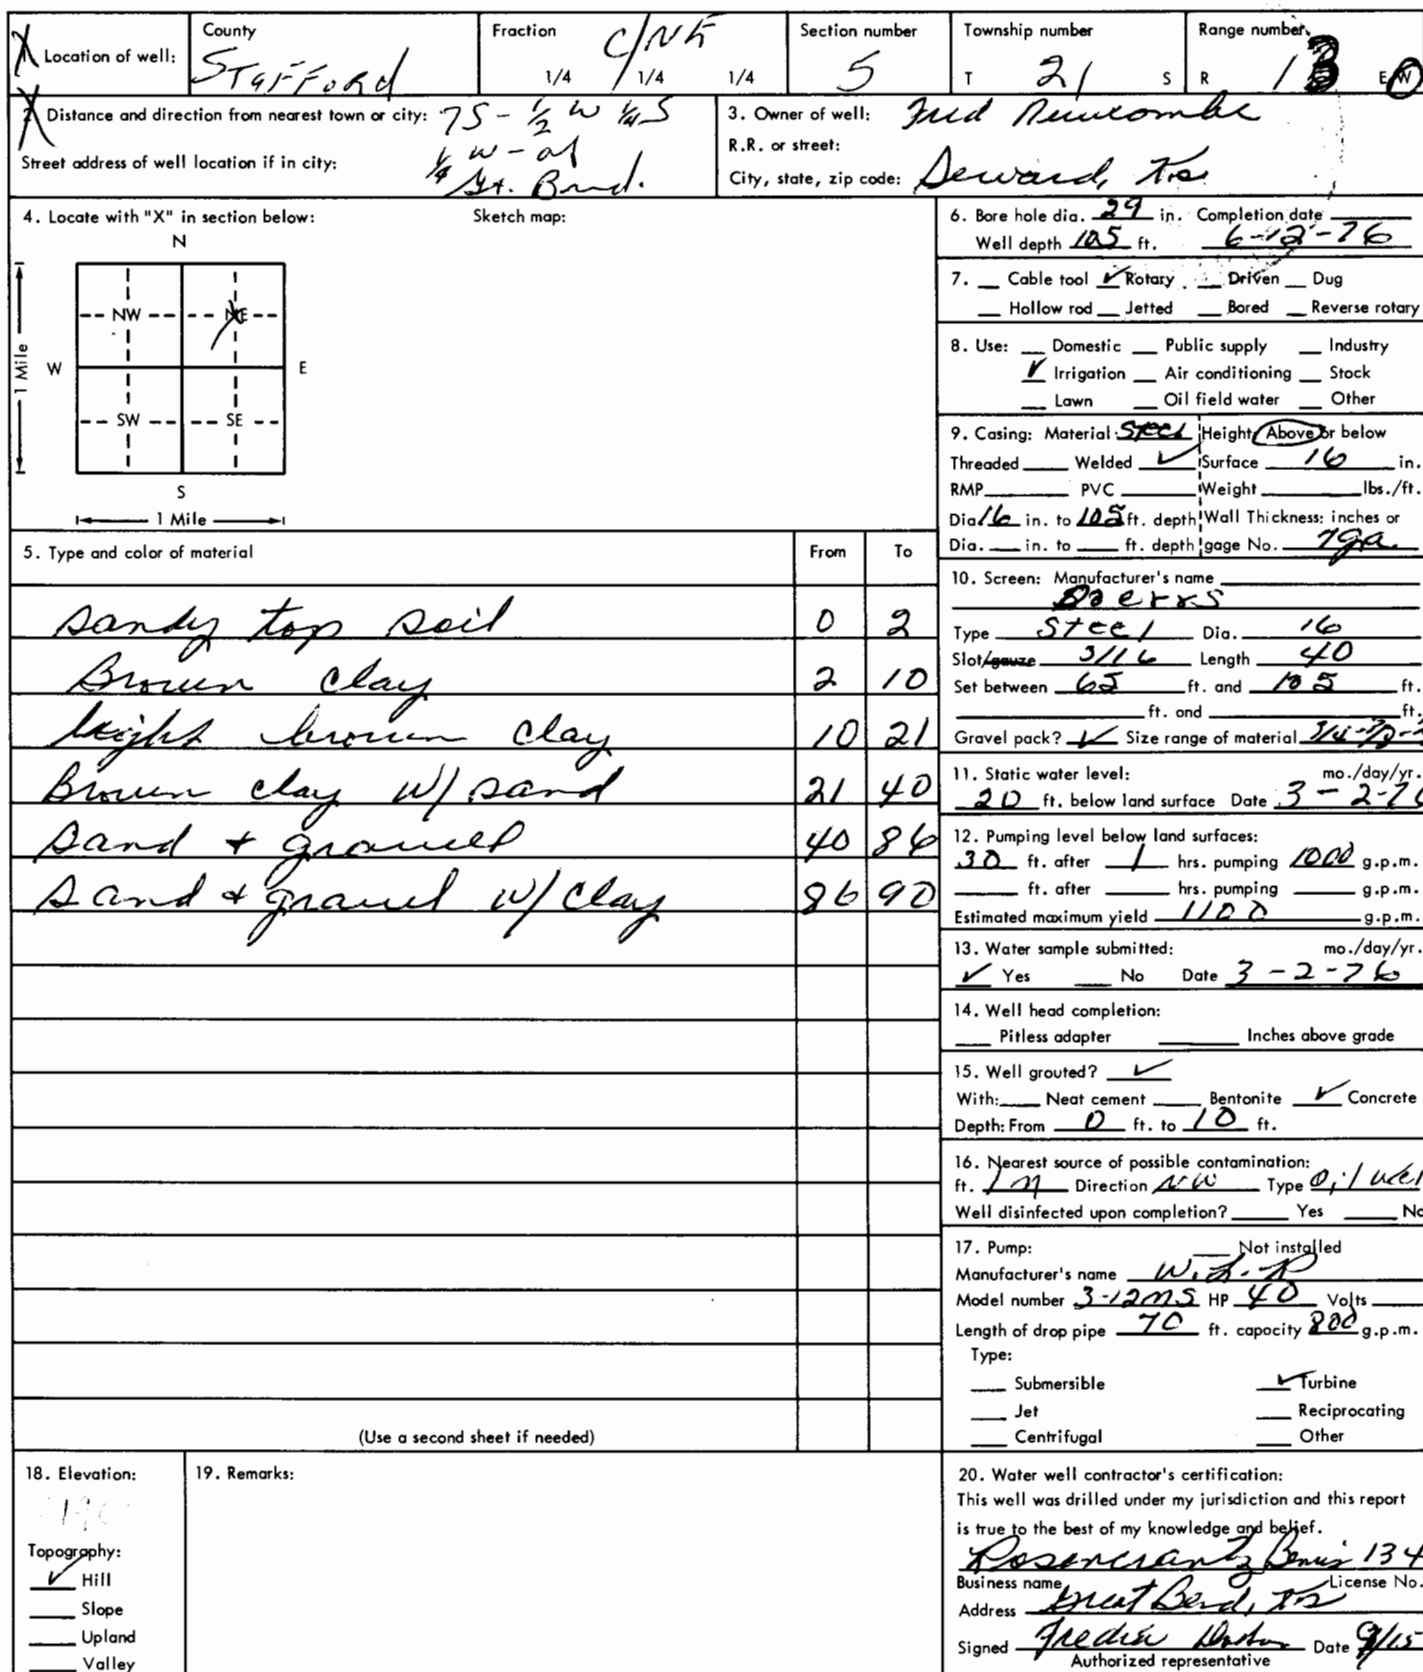 1 Location of well: County Stafford Fraction C/NE 1/4 1/4 1/4 Section number 5 Township number T 21 S Range number R 13 E W
2 Distance and direction from nearest town or city: 7S - 1/2 W 1/4 S
1/4 W - of
Gt. Bend.
Street address of well location if in city:
3. Owner of well: Fred Newcombe
R.R. or street:
City, state, zip code: Seward, Ks.
4. Locate with "X" in section below: Sketch map:
N
NW NE
W E
1 Mile
SW SE
S
1 Mile
5. Type and color of material From To
Sandy top soil 0 2
Brown clay 2 10
Light brown clay 10 21
Brown clay w/ sand 21 40
Sand + gravel 40 86
Sand + gravel w/ clay 86 90
(Use a second sheet if needed)
6. Bore hole dia. 29 in. Completion date
Well depth 105 ft. 6-12-76
7. Cable tool ✓ Rotary Driven Dug
Hollow rod Jetted Bored Reverse rotary
8. Use: Domestic Public supply Industry
✓ Irrigation Air conditioning Stock
Lawn Oil field water Other
9. Casing: Material: Steel Height: Above or below
Threaded Welded ✓ Surface 16 in.
RMP PVC Weight lbs./ft.
Dia 16 in. to 105 ft. depth Wall Thickness: inches or
Dia. in. to ft. depth gage No. 7ga.
10. Screen: Manufacturer's name
Doerrs
Type Steel Dia. 16
Slot/gauze 3/16 Length 40
Set between 65 ft. and 105 ft.
ft. and ft.
Gravel pack? ✓ Size range of material
11. Static water level: mo./day/yr.
20 ft. below land surface Date 3-2-76
12. Pumping level below land surfaces:
30 ft. after 1 hrs. pumping 1000 g.p.m.
ft. after hrs. pumping g.p.m.
Estimated maximum yield 1100 g.p.m.
13. Water sample submitted: mo./day/yr.
✓ Yes No Date 3-2-76
14. Well head completion:
Pitless adapter Inches above grade
15. Well grouted? ✓
With: Neat cement Bentonite ✓ Concrete
Depth: From 0 ft. to 10 ft.
16. Nearest source of possible contamination:
ft. 1 m Direction NW Type Oil well
Well disinfected upon completion? Yes No
17. Pump: Not installed
Manufacturer's name W.L.R
Model number 3-12MS HP 40 Volts
Length of drop pipe 70 ft. capacity 800 g.p.m.
Type:
Submersible ✓ Turbine
Jet Reciprocating
Centrifugal Other
18. Elevation:
Topography:
✓ Hill
Slope
Upland
Valley
19. Remarks:
20. Water well contractor's certification:
This well was drilled under my jurisdiction and this report
is true to the best of my knowledge and belief.
Rosencrantz Bemis 134
Business name License No.
Address Great Bend, Ks
Signed Date 9/15
Authorized representative